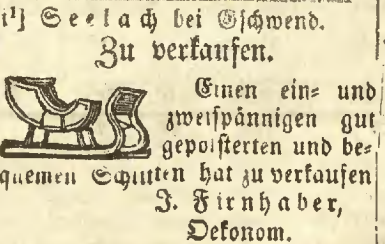 i¹] Seelach bei Gschwend.
Zu verkaufen.
Einen ein= und
zweispännigen gut
gepolsterten und be=
quemen Schlitten hat zu verkaufen
J. Firnhaber,
Oekonom.